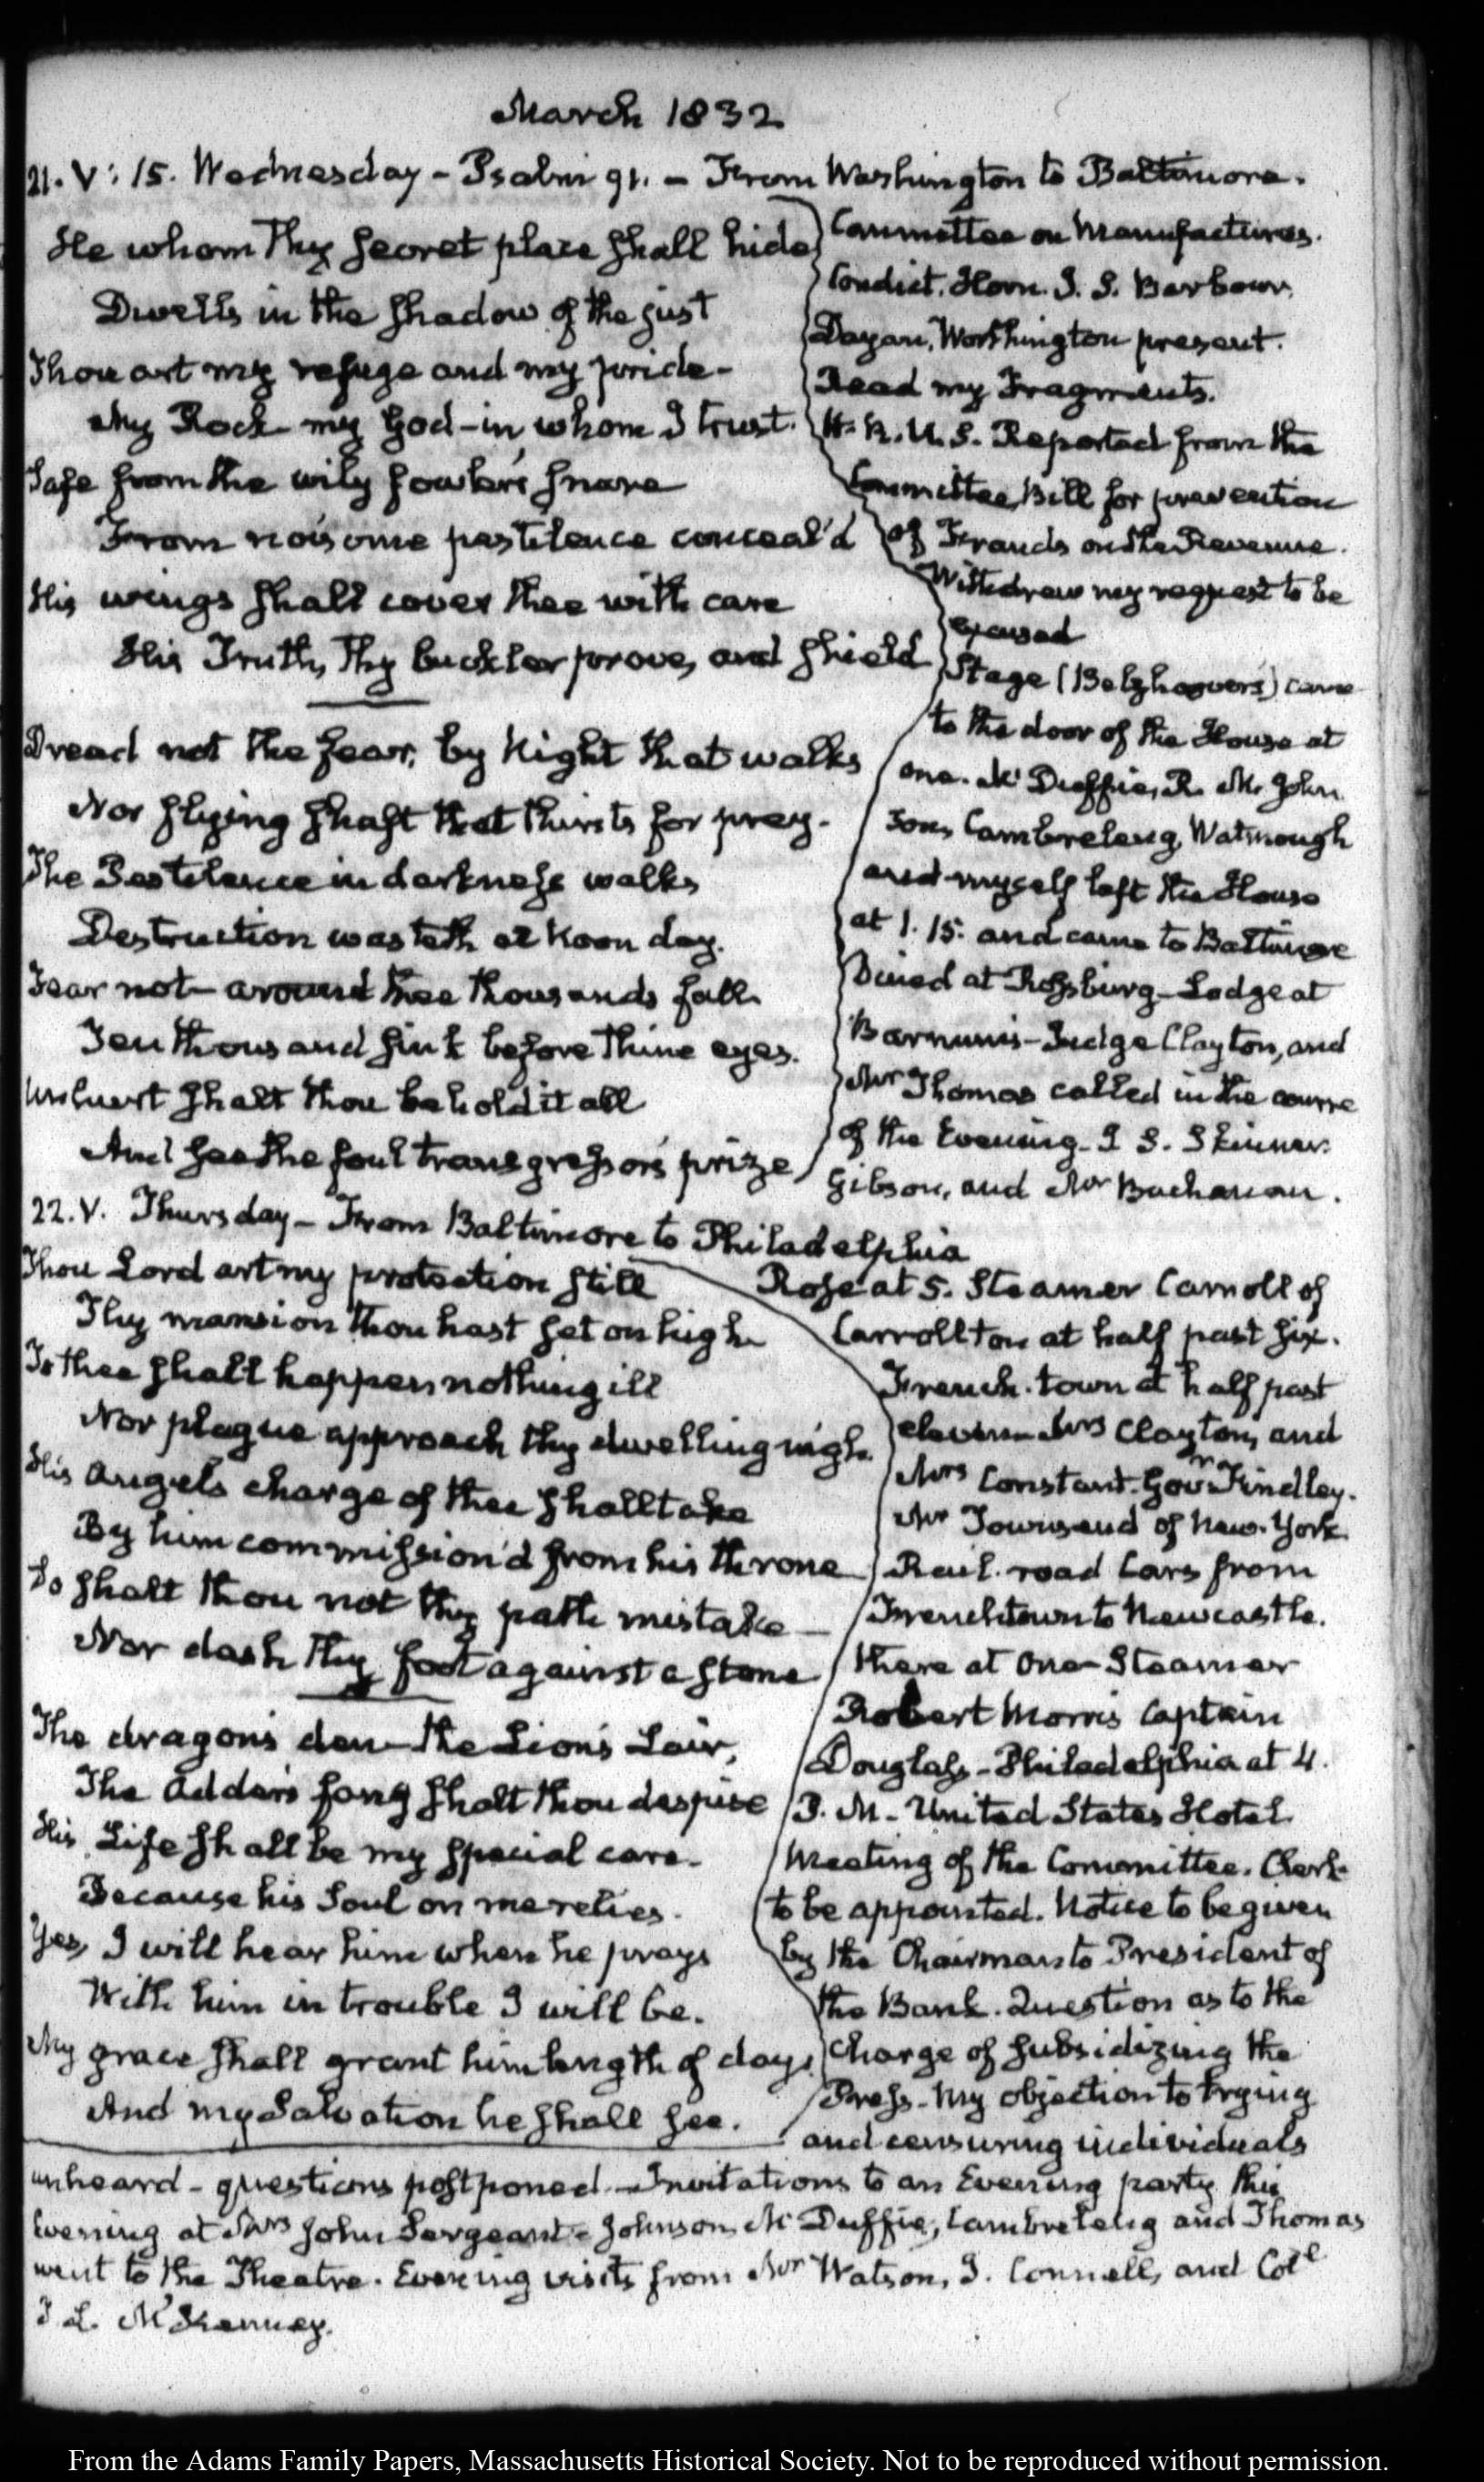 March 1832
21. V: 15. Wednesday - Psalm 91. - From Washington to Baltimore.
He whom Thy secret place shall hide
Dwells in the shadow of the just
Thou art my refuge and my pride -
My Rock my God - in whom I trust.
Safe from the wily fowler's snare
From noisome pestilence conceal'd
His wings shall cover thee with care
His Truth, Thy buckler prove, and shield
Dread not the fear, by Night that walks
Nor flying shaft that thirsts for prey.
The Pestilence in darkness walks
Destruction wasteth at Noon day.
Fear not - around thee thousands fall
Ten thousand sink before thine eyes.
Unhurt shalt thou behold it all
And see the foul transgressor's prize
Committee on Manufactures.
Condict. Horn. J. S. Barbour,
Dayan, Worthington present.
Read my Fragments.
H. R. U. S. Reported from the
Committee, Bill for prevention
of Frauds on the Revenue.
Withdrew my request to be
excused
Stage (Belzhoover's) came
to the door of the House at
one. Mc Duffie, R. M. John
son, Cambreleng, Watmough
and myself left the House
at 1. 15. and came to Baltimore
Dined at Rossburg - Lodge at
Barnum's - Judge Clayton, and
Mr Thomas called in the course
of the Evening - J. S. Skinner.
Gibson, and Mr Buchanan.
22. V. Thursday - From Baltimore to Philadelphia
Thou Lord art my protection still
Thy mansion thou hast set on high
To thee shall happen nothing ill
Nor plague approach thy dwelling nigh.
His angels charge of thee shall take
By him commission'd from his throne
So shalt thou not thy path mistake -
Nor dash thy foot against a stone
The dragon's den - the Lion's Lair,
The Adder's fang shalt thou despise
His Life shall be my special care -
Because his Soul on me relies.
Yes, I will hear him when he prays
With him in trouble I will be.
My grace shall grant him length of days
And my Salvation he shall see.
Rose at 5. Steamer Carroll of
Carrollton at half past six.
French-town at half past
eleven - Mrs Clayton, and
Mrs Constant - Govr Findley.
Mr Townsend of New-York
Rail-road Cars from
Frenchtown to Newcastle.
there at One - Steamer
Robert Morris Captain
Douglass - Philadelphia at 4.
P. M. - United States Hotel
Meeting of the Committee. Clerk
to be appointed. Notice to be given
by the Chairman to President of
the Bank. Question as to the
charge of subsidizing the
Press - My objection to trying
and censuring individuals
unheard - questions postponed - Invitations to an Evening party this
Evening at Mrs John Sergeant's - Johnson, Mc Duffie, Cambreleng and Thomas
went to the Theatre. Evening visits from Mr Watson, J. Connell, and Coll
T L. McKenney.
From the Adams Family Papers, Massachusetts Historical Society. Not to be reproduced without permission.